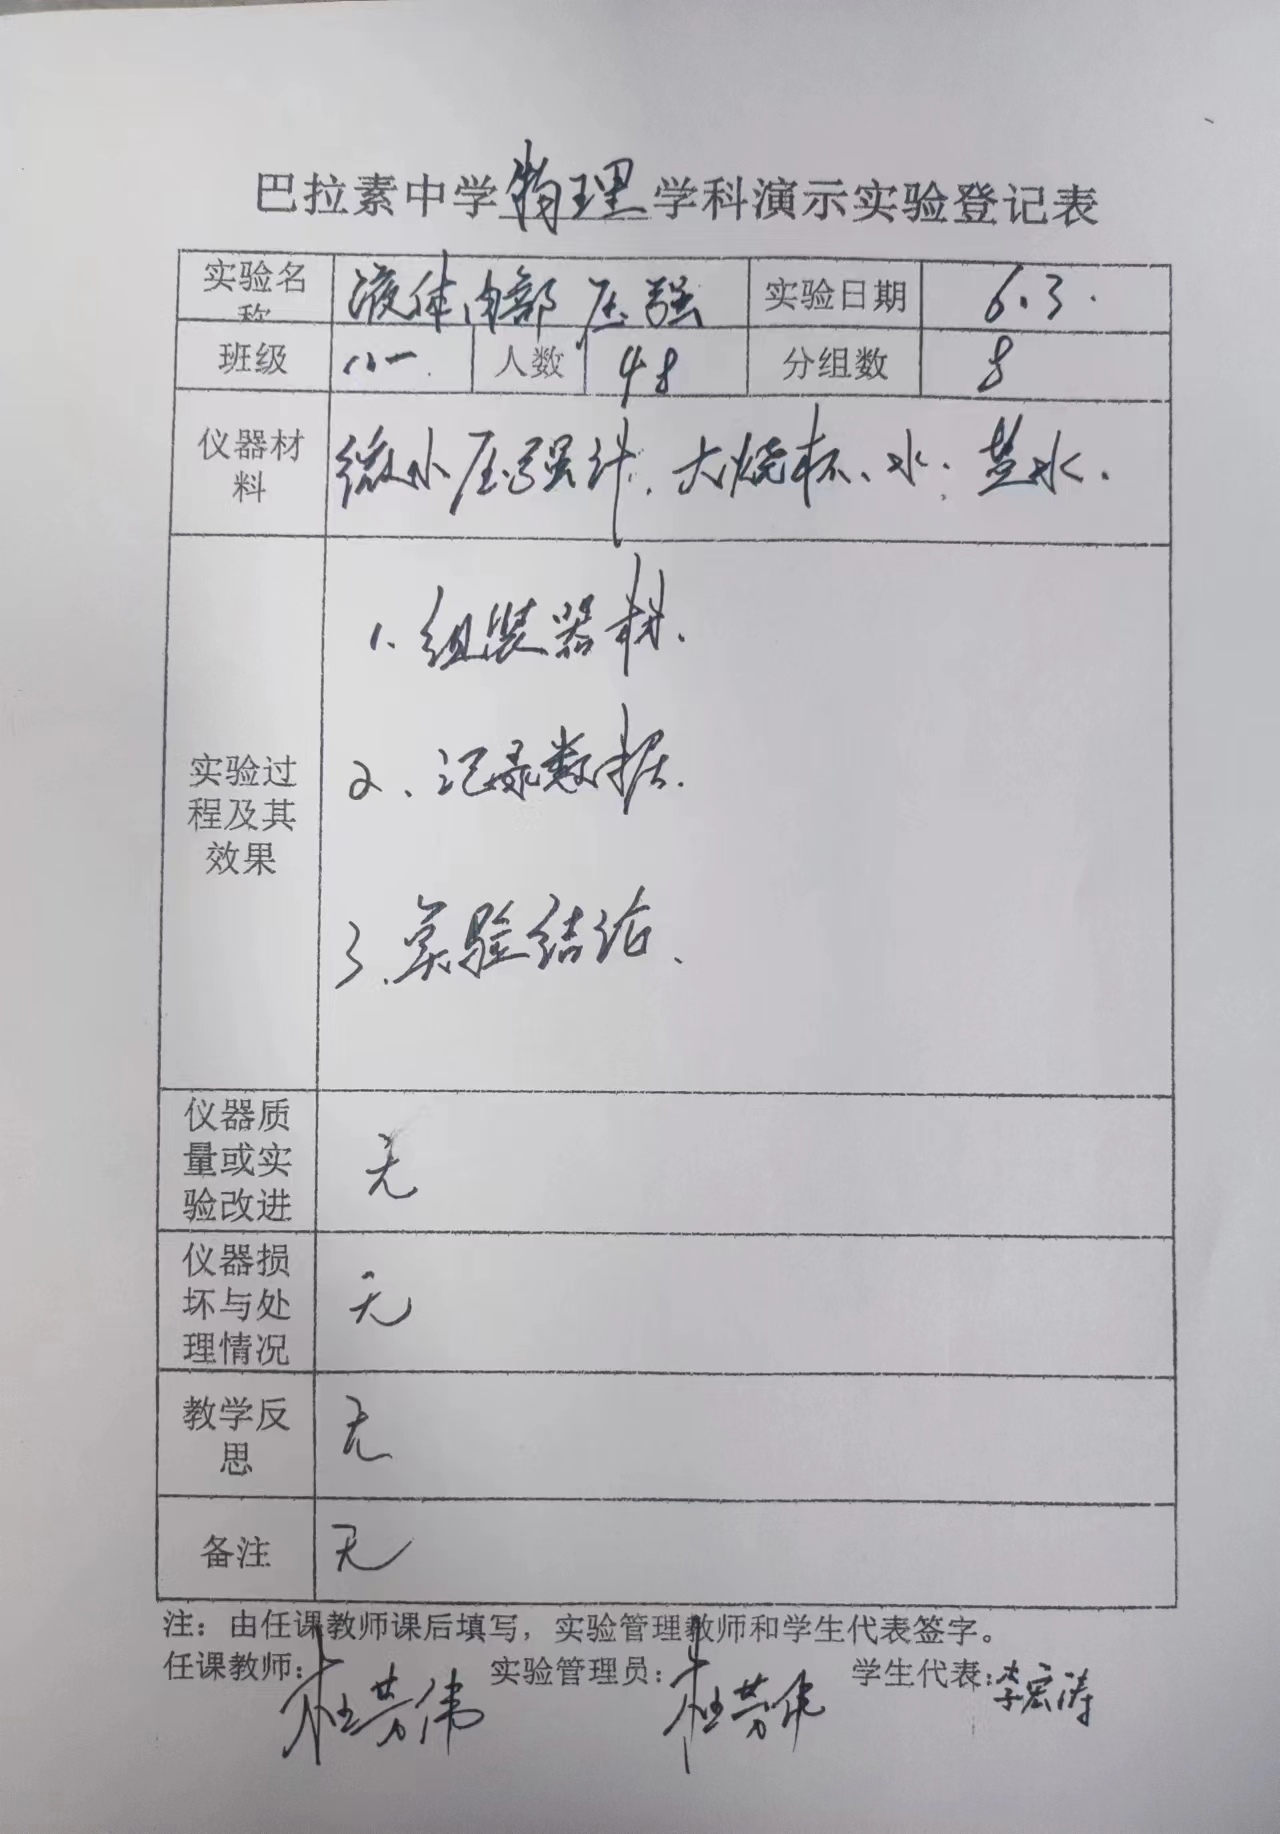 巴拉素中学物理学科演示实验登记表
实验名称 液体内部压强 实验日期 6.3.
班级 八一. 人数 48 分组数 8
仪器材料 微小压强计、大烧杯、水、盐水.
实验过程及其效果
1、组装器材.
2、记录数据.
3、实验结论、
仪器质量或实验改进 无
仪器损坏与处理情况 无
教学反思 无
备注 无
注：由任课教师课后填写，实验管理教师和学生代表签字。
任课教师：杜芳伟 实验管理员：杜芳伟 学生代表：李宏涛